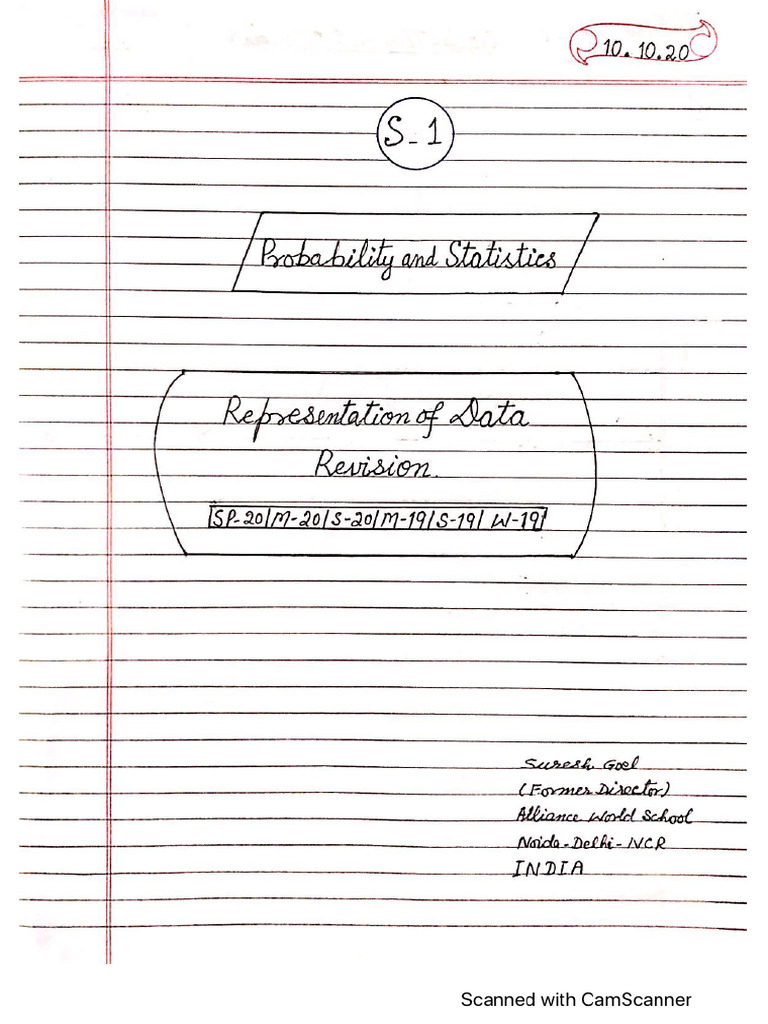 10.10.20
S-1
Probability and Statistics
Representation of Data
Revision.
SP-20/M-20/S-20/M-19/S-19/ W-19
Suresh Goel
(Former Director)
Alliance World School
Noida-Delhi-NCR
INDIA
Scanned with CamScanner